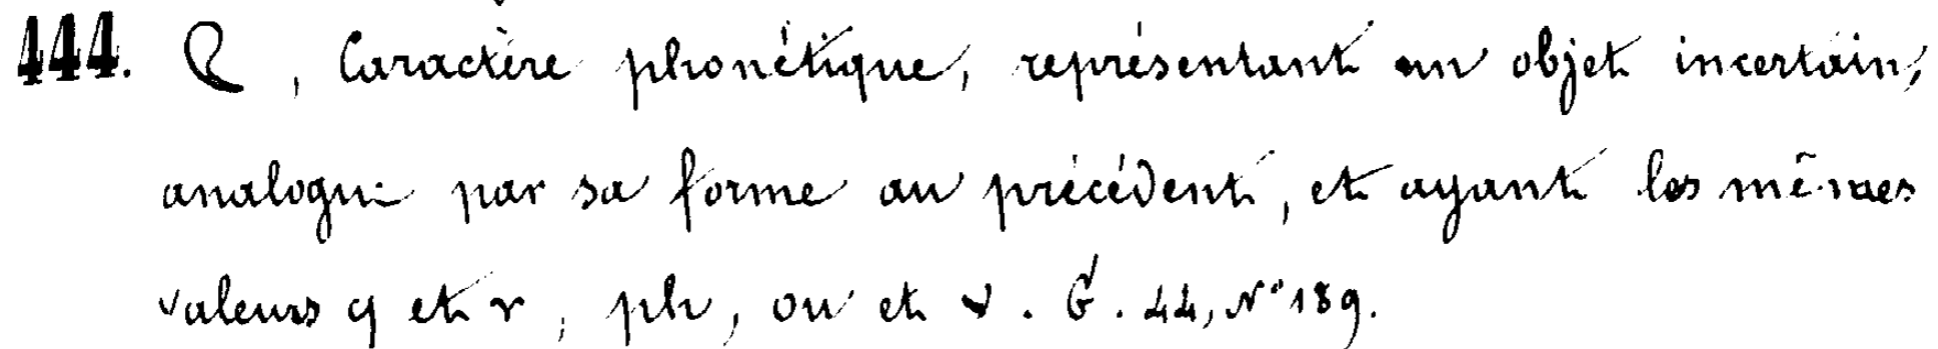 444. , Caractère phonétique, représentant un objet incertain,
analogue par sa forme au précédent, et ayant les mêmes
valeurs ϥ et ⲩ, ph, ou et v. G. 44, N° 189.